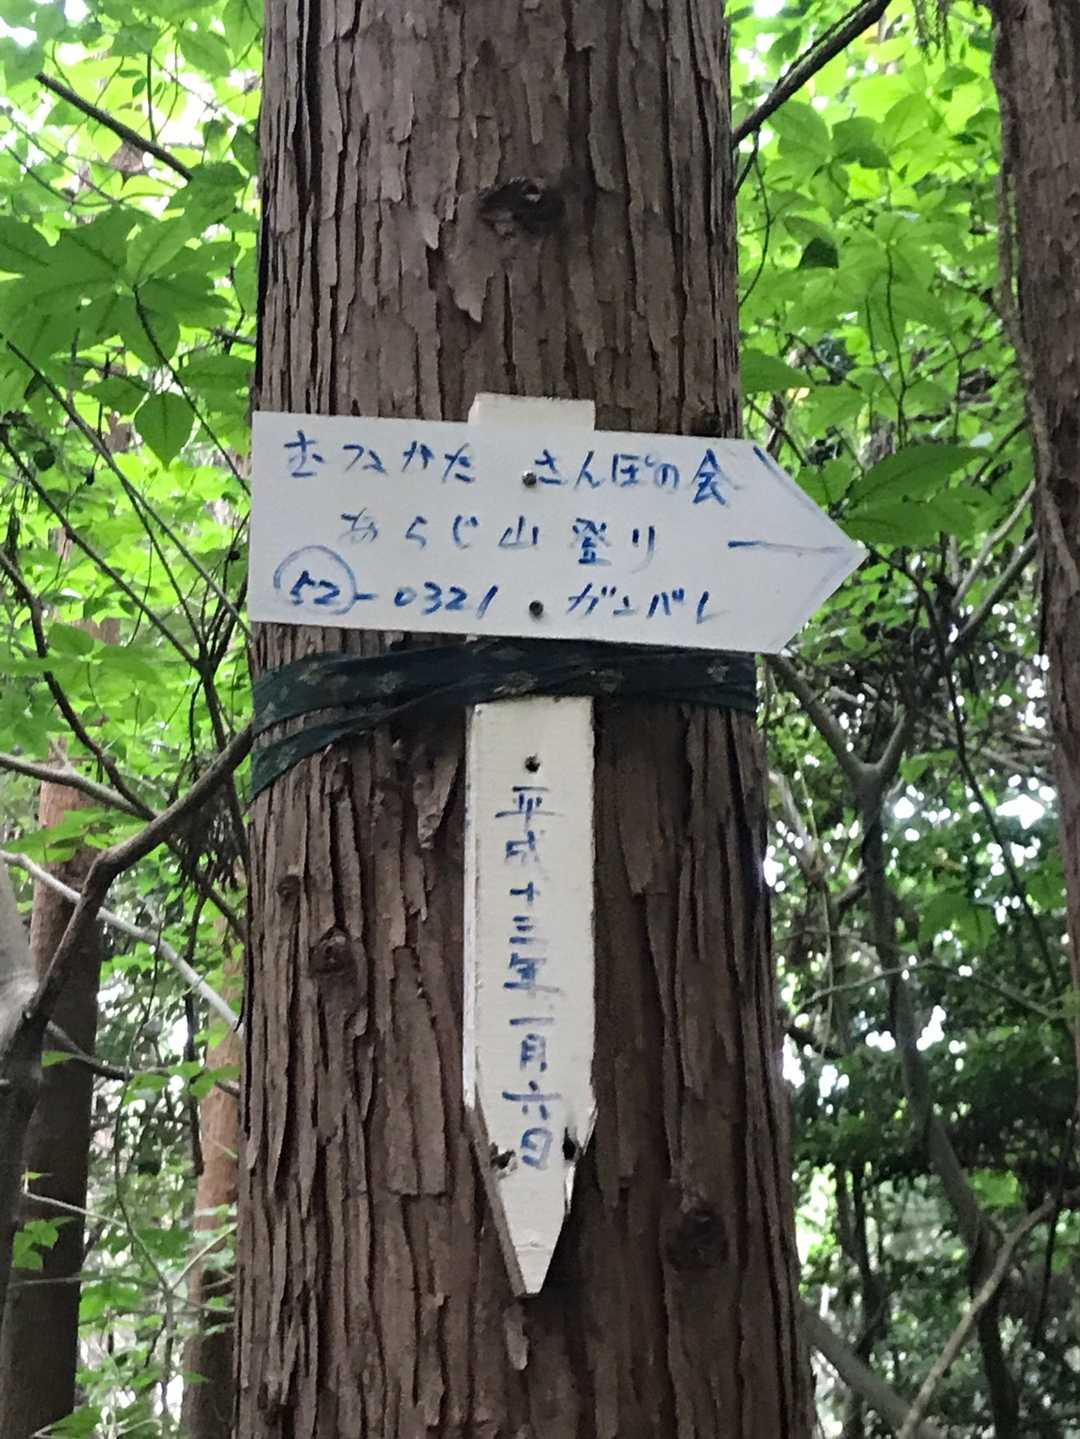 むつみかた さんぽの会
あらじ山登り
52-0321 ガンバレ
平成十三年一月六日